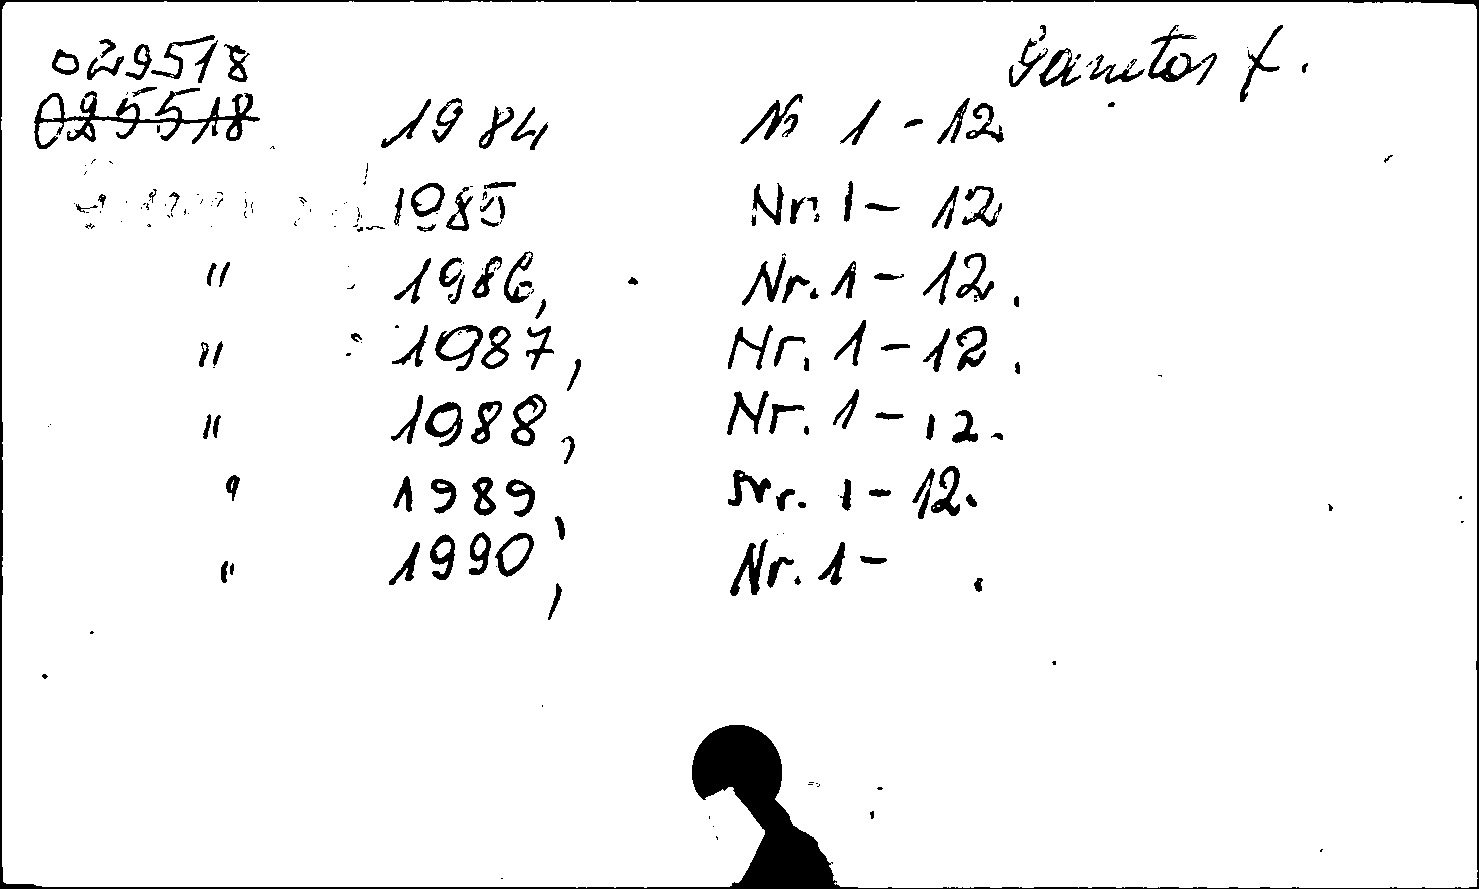 029518
025518
1984 Nr 1-12
1985 Nr. 1-12
" 1986, Nr. 1-12.
" 1987, Nr. 1-12.
" 1988, Nr. 1-12.
" 1989, Nr. 1-12.
" 1990, Nr. 1- .